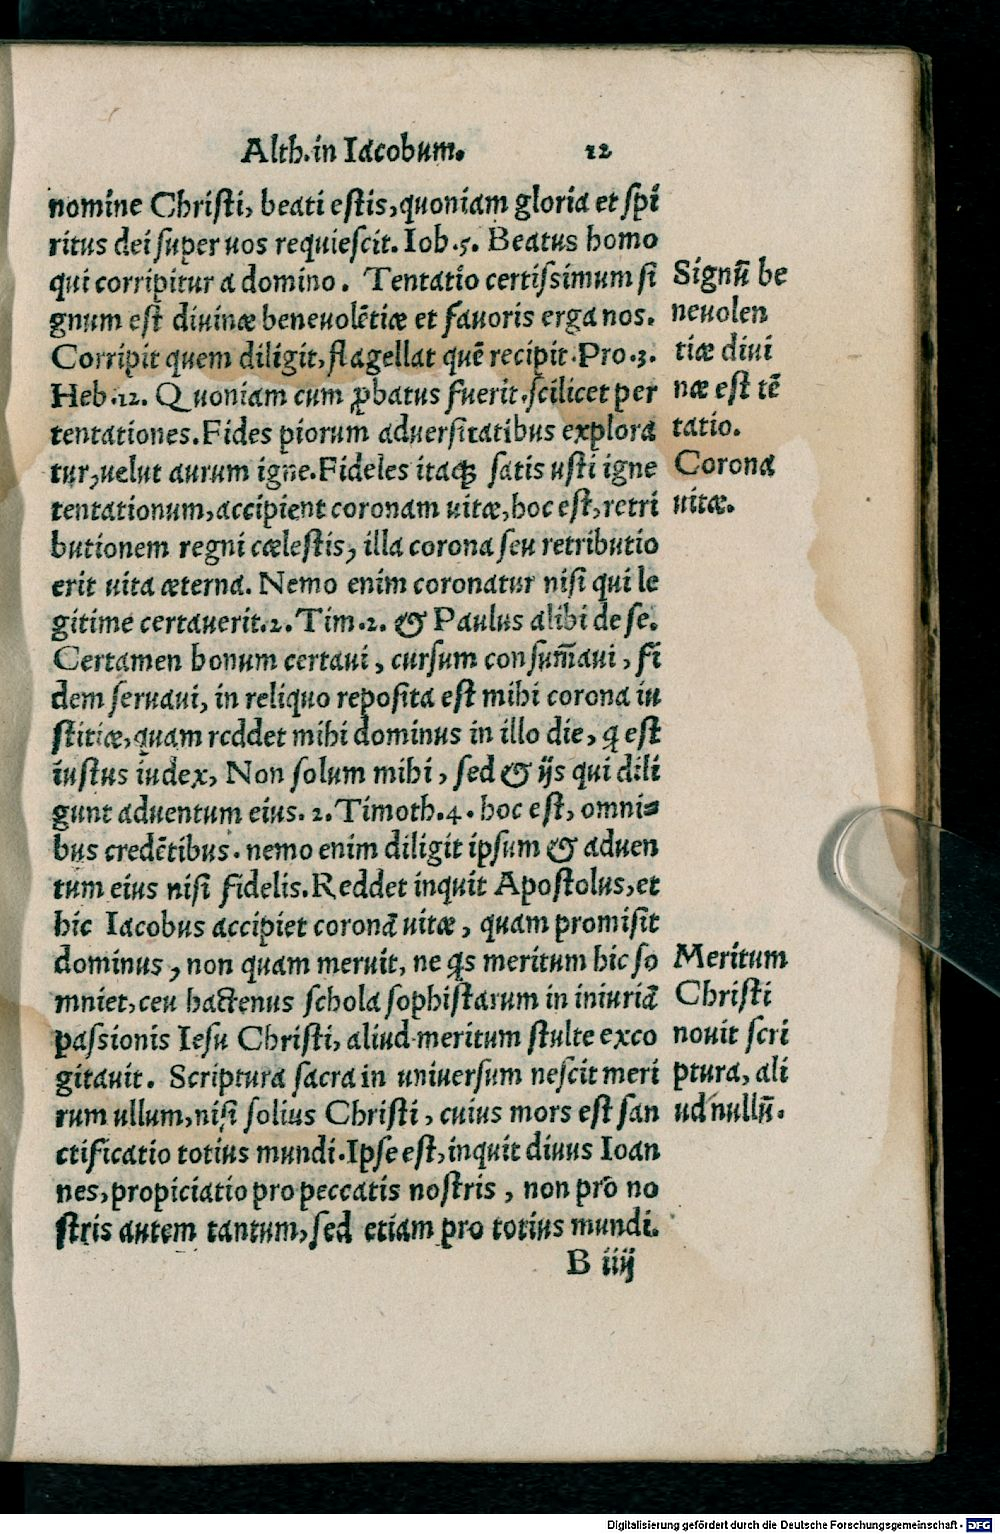 Alth. in Iacobum. 12
nomine Christi, beati estis, quoniam gloria et spi
ritus dei super uos requiescit. Iob .5. Beatus homo
qui corripitur a domino. Tentatio certissimum si
gnum est diuinæ beneuolẽtiæ et fauoris erga nos.
Corripit quem diligit, flagellat quẽ recipit. Pro .3.
Heb .12. Quoniam cum ꝓbatus fuerit. scilicet per
tentationes. Fides piorum aduersitatibus explora
tur, uelut aurum igne. Fideles itaqꝫ satis usti igne
tentationum, accipient coronam uitæ, hoc est, retri
butionem regni cælestis, illa corona seu retributio
erit uita æterna. Nemo enim coronatur nisi qui le
gitime certauerit. 2. Tim. 2. & Paulus alibi de se.
Certamen bonum certaui, cursum consum̃aui, fi
dem seruaui, in reliquo reposita est mihi corona iu
stitiæ, quam reddet mihi dominus in illo die, ꝗ est
iustus iudex, Non solum mihi, sed & ijs qui dili
gunt aduentum eius. 2. Timoth. 4. hoc est, omni-
bus credẽtibus. nemo enim diligit ipsum & aduen
tum eius nisi fidelis. Reddet inquit Apostolus, et
hic Iacobus accipiet coronã uitæ, quam promisit
dominus, non quam meruit, ne ꝗs meritum hic so
mniet, ceu hactenus schola sophistarum in iniuriã
passionis Iesu Christi, aliud meritum stulte exco
gitauit. Scriptura sacra in uniuersum nescit meri
tum ullum, nisi solius Christi, cuius mors est san
ctificatio totius mundi. Ipse est, inquit diuus Ioan
nes, propiciatio pro peccatis nostris, non pro no
stris autem tantum, sed etiam pro totius mundi.
B iiij
Signũ be
neuolen
tiæ diui
næ est tẽ
tatio.
Corona
uitæ.
Meritum
Christi
nouit scri
ptura, ali
ud nullũ.
Digitalisierung gefördert durch die Deutsche Forschungsgemeinschaft - DFG